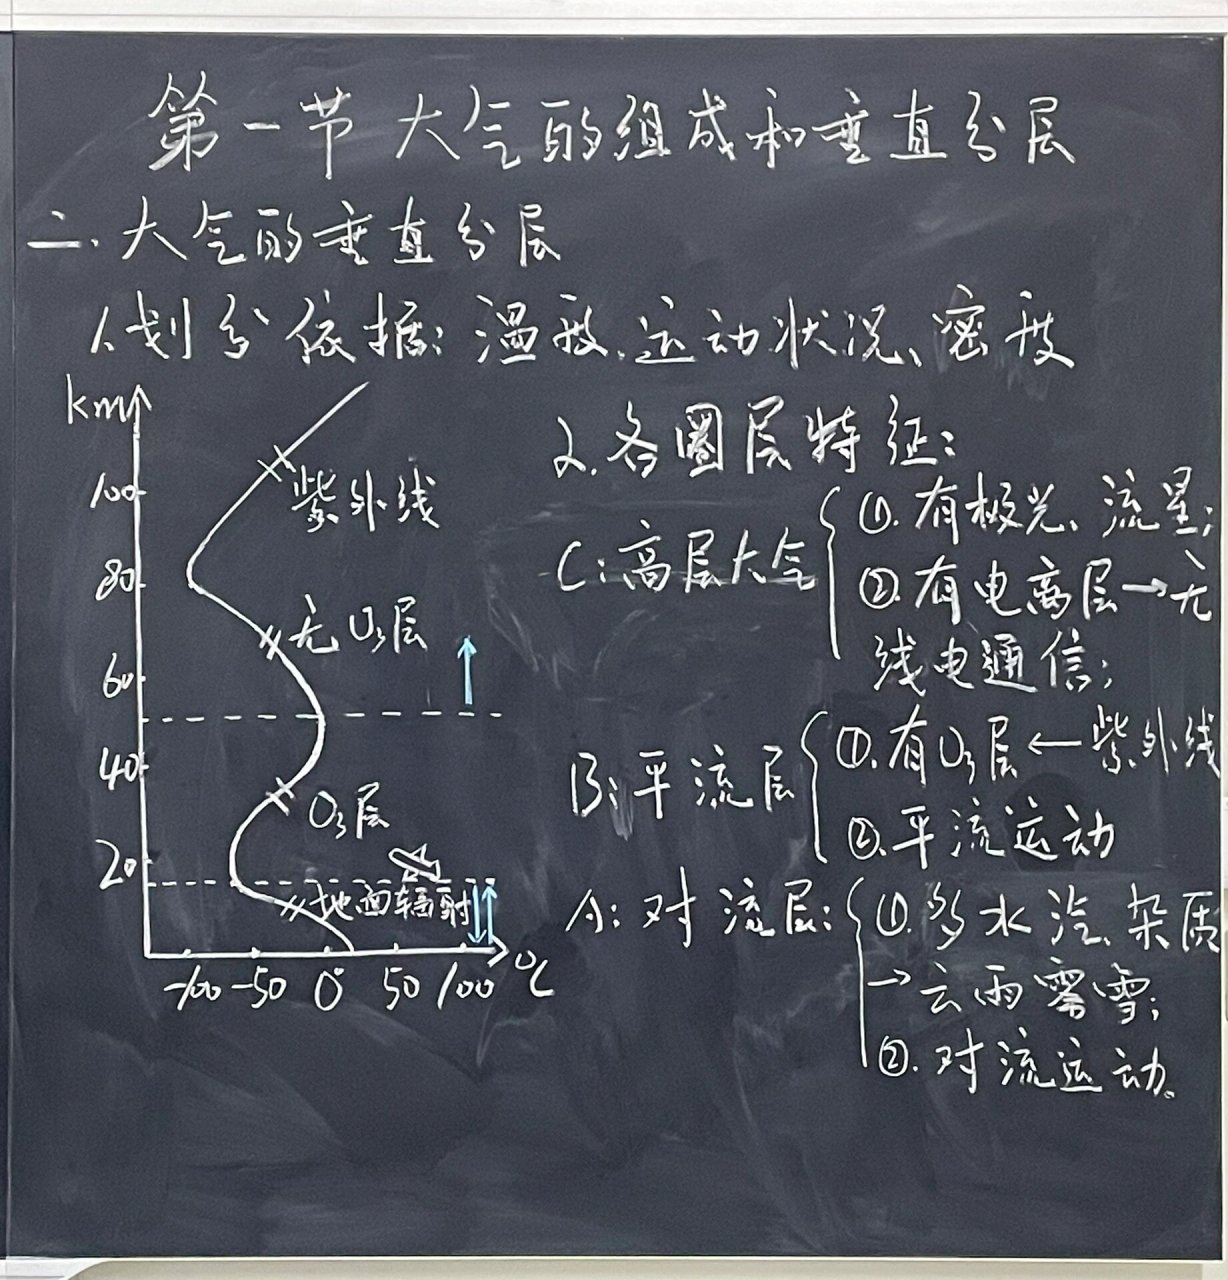 第一节 大气的组成和垂直分层
二.大气的垂直分层
1.划分依据:温度、运动状况、密度
km
100
80
60
40
20
紫外线
无O₃层
O₃层
地面辐射
-100 -50 0 50 100 ℃
2.各圈层特征:
C:高层大气
①.有极光、流星;
②.有电离层→无
线电通信;
B:平流层
①.有O₃层←紫外线
②.平流运动
A:对流层:
①.多水汽、杂质
→云雨雾雪;
②.对流运动。